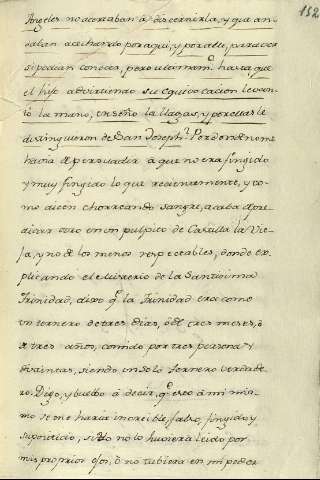 152
Angeles no acertaban â discernirla, y que an-
saban acechando por aqui, y por alli, para ver
si podian conocer, pero ultimamte. hasta, que
el hijo advirtiendo su equivocacion levan-
tô la mano, enseño la llaga, y por ella le
distinguieron de San Joseph. Perdoneme
hasta â persuadir â que no era fingido
y muy fingido lo que recientemente, y co-
mo dicen chorreando sangre, acaba de pre-
dicar otro en un pulpito de Castilla la Vie-
ja, y no de los menos respectables, donde ex-
plicando el Misterio de la Santisima
Trinidad, dixo qe. la Trinidad era como
un ternero de tres dias, ô de tres meses, ô
de tres años, comido por tres personas
distintas, siendo un solo ternero verdade-
ro. Digo, y buelbo â decir, qe. eso â mi mis-
mo se me haria increible, falso, fingido, y
supositicio, si yo no lo huviera leido por
mis proprios ojos, ô no tubiera en mi poder